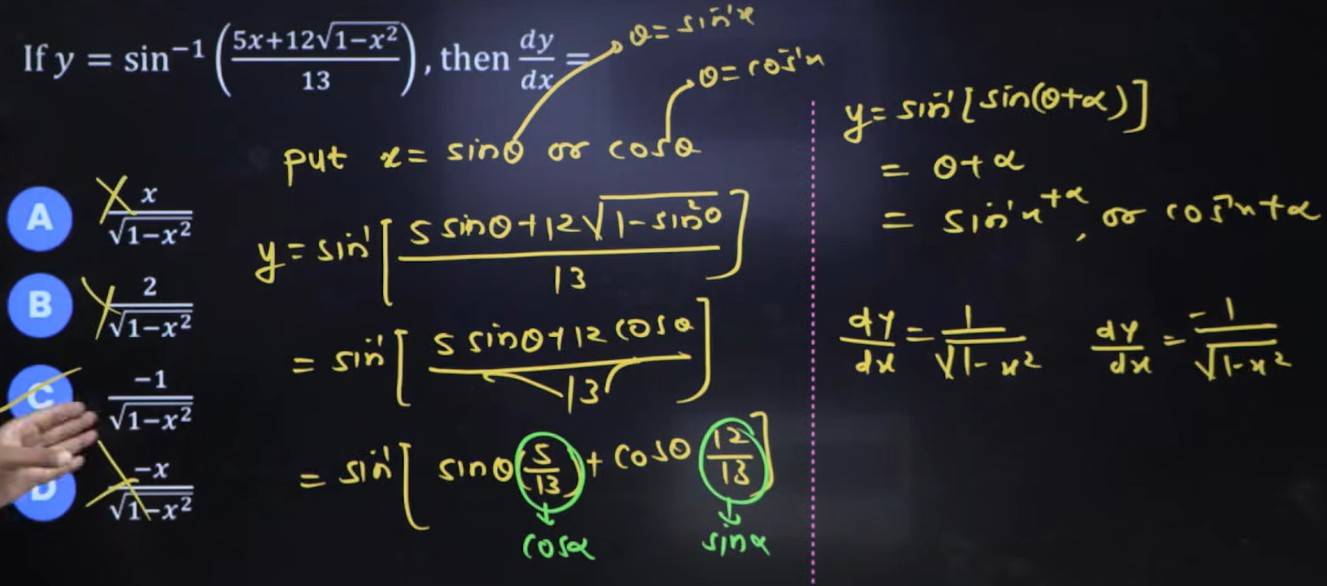 If y = sin⁻¹ ((5x+12√(1−x²))/13), then dy/dx =
θ = sin⁻¹x
θ = cos⁻¹x
put x = sinθ or cosθ
A x/√(1−x²)
B 2/√(1−x²)
C −1/√(1−x²)
D −x/√(1−x²)
y = sin⁻¹[(5 sinθ + 12√(1−sin²θ))/13]
= sin⁻¹[(5 sinθ + 12 cosθ)/13]
= sin⁻¹[sinθ (5/13) + cosθ (12/13)]
cosα sinα
y = sin⁻¹[sin(θ+α)]
= θ + α
= sin⁻¹x + α, or cos⁻¹x + α
dy/dx = 1/√(1−x²) dy/dx = −1/√(1−x²)